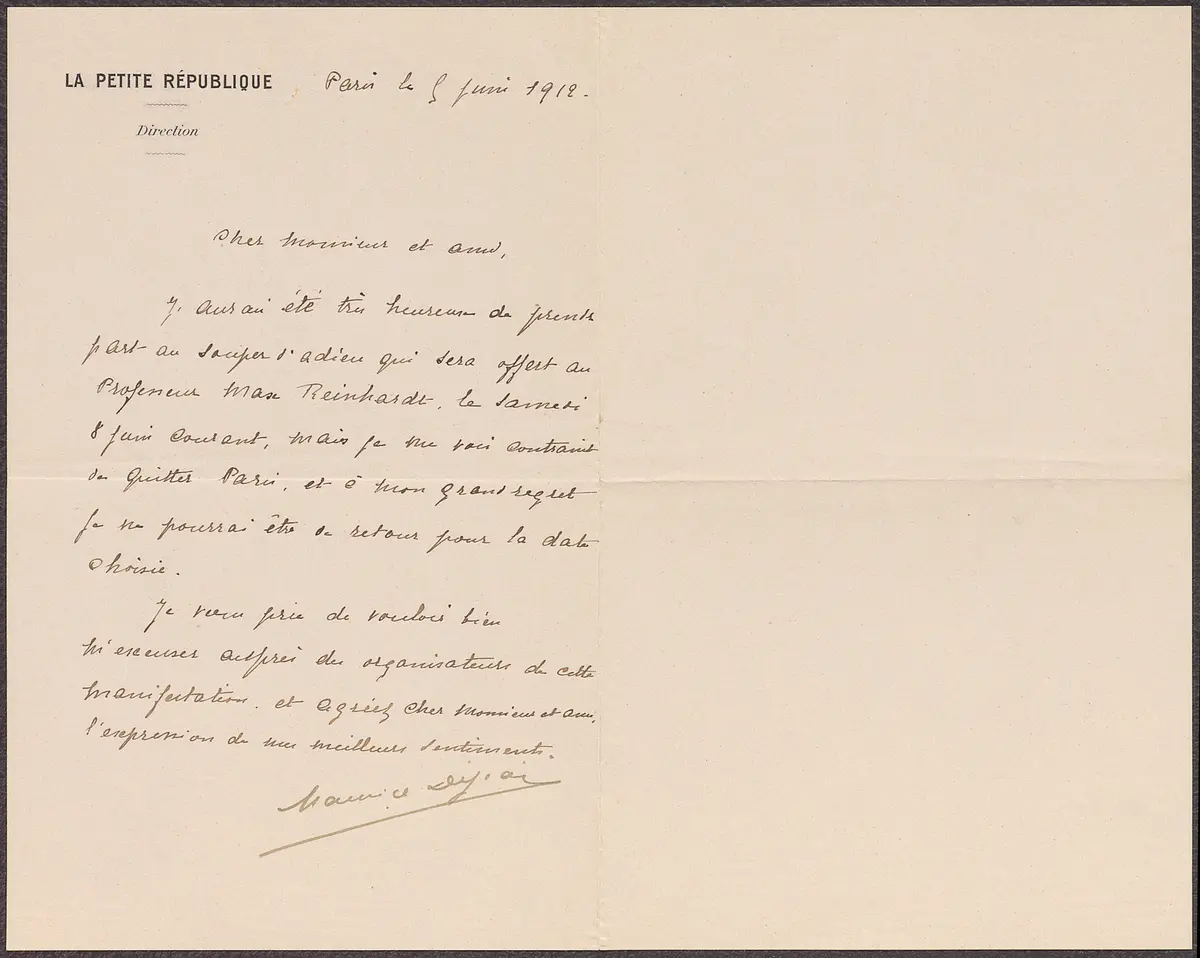 LA PETITE RÉPUBLIQUE
Direction
Paris le 5 juin 1912.
Cher Monsieur et ami,
J'aurai été très heureux de prendre
part au souper d'adieu qui sera offert au
Professeur Max Reinhardt, le samedi
8 juin courant, mais je me vois contraint
de quitter Paris, et à mon grand regret
je ne pourrai être de retour pour la date
choisie.
Je vous prie de vouloir bien
m'excuser auprès des organisateurs de cette
manifestation, et agréez cher Monsieur et ami,
l'expression de mes meilleurs sentiments.
Maurice